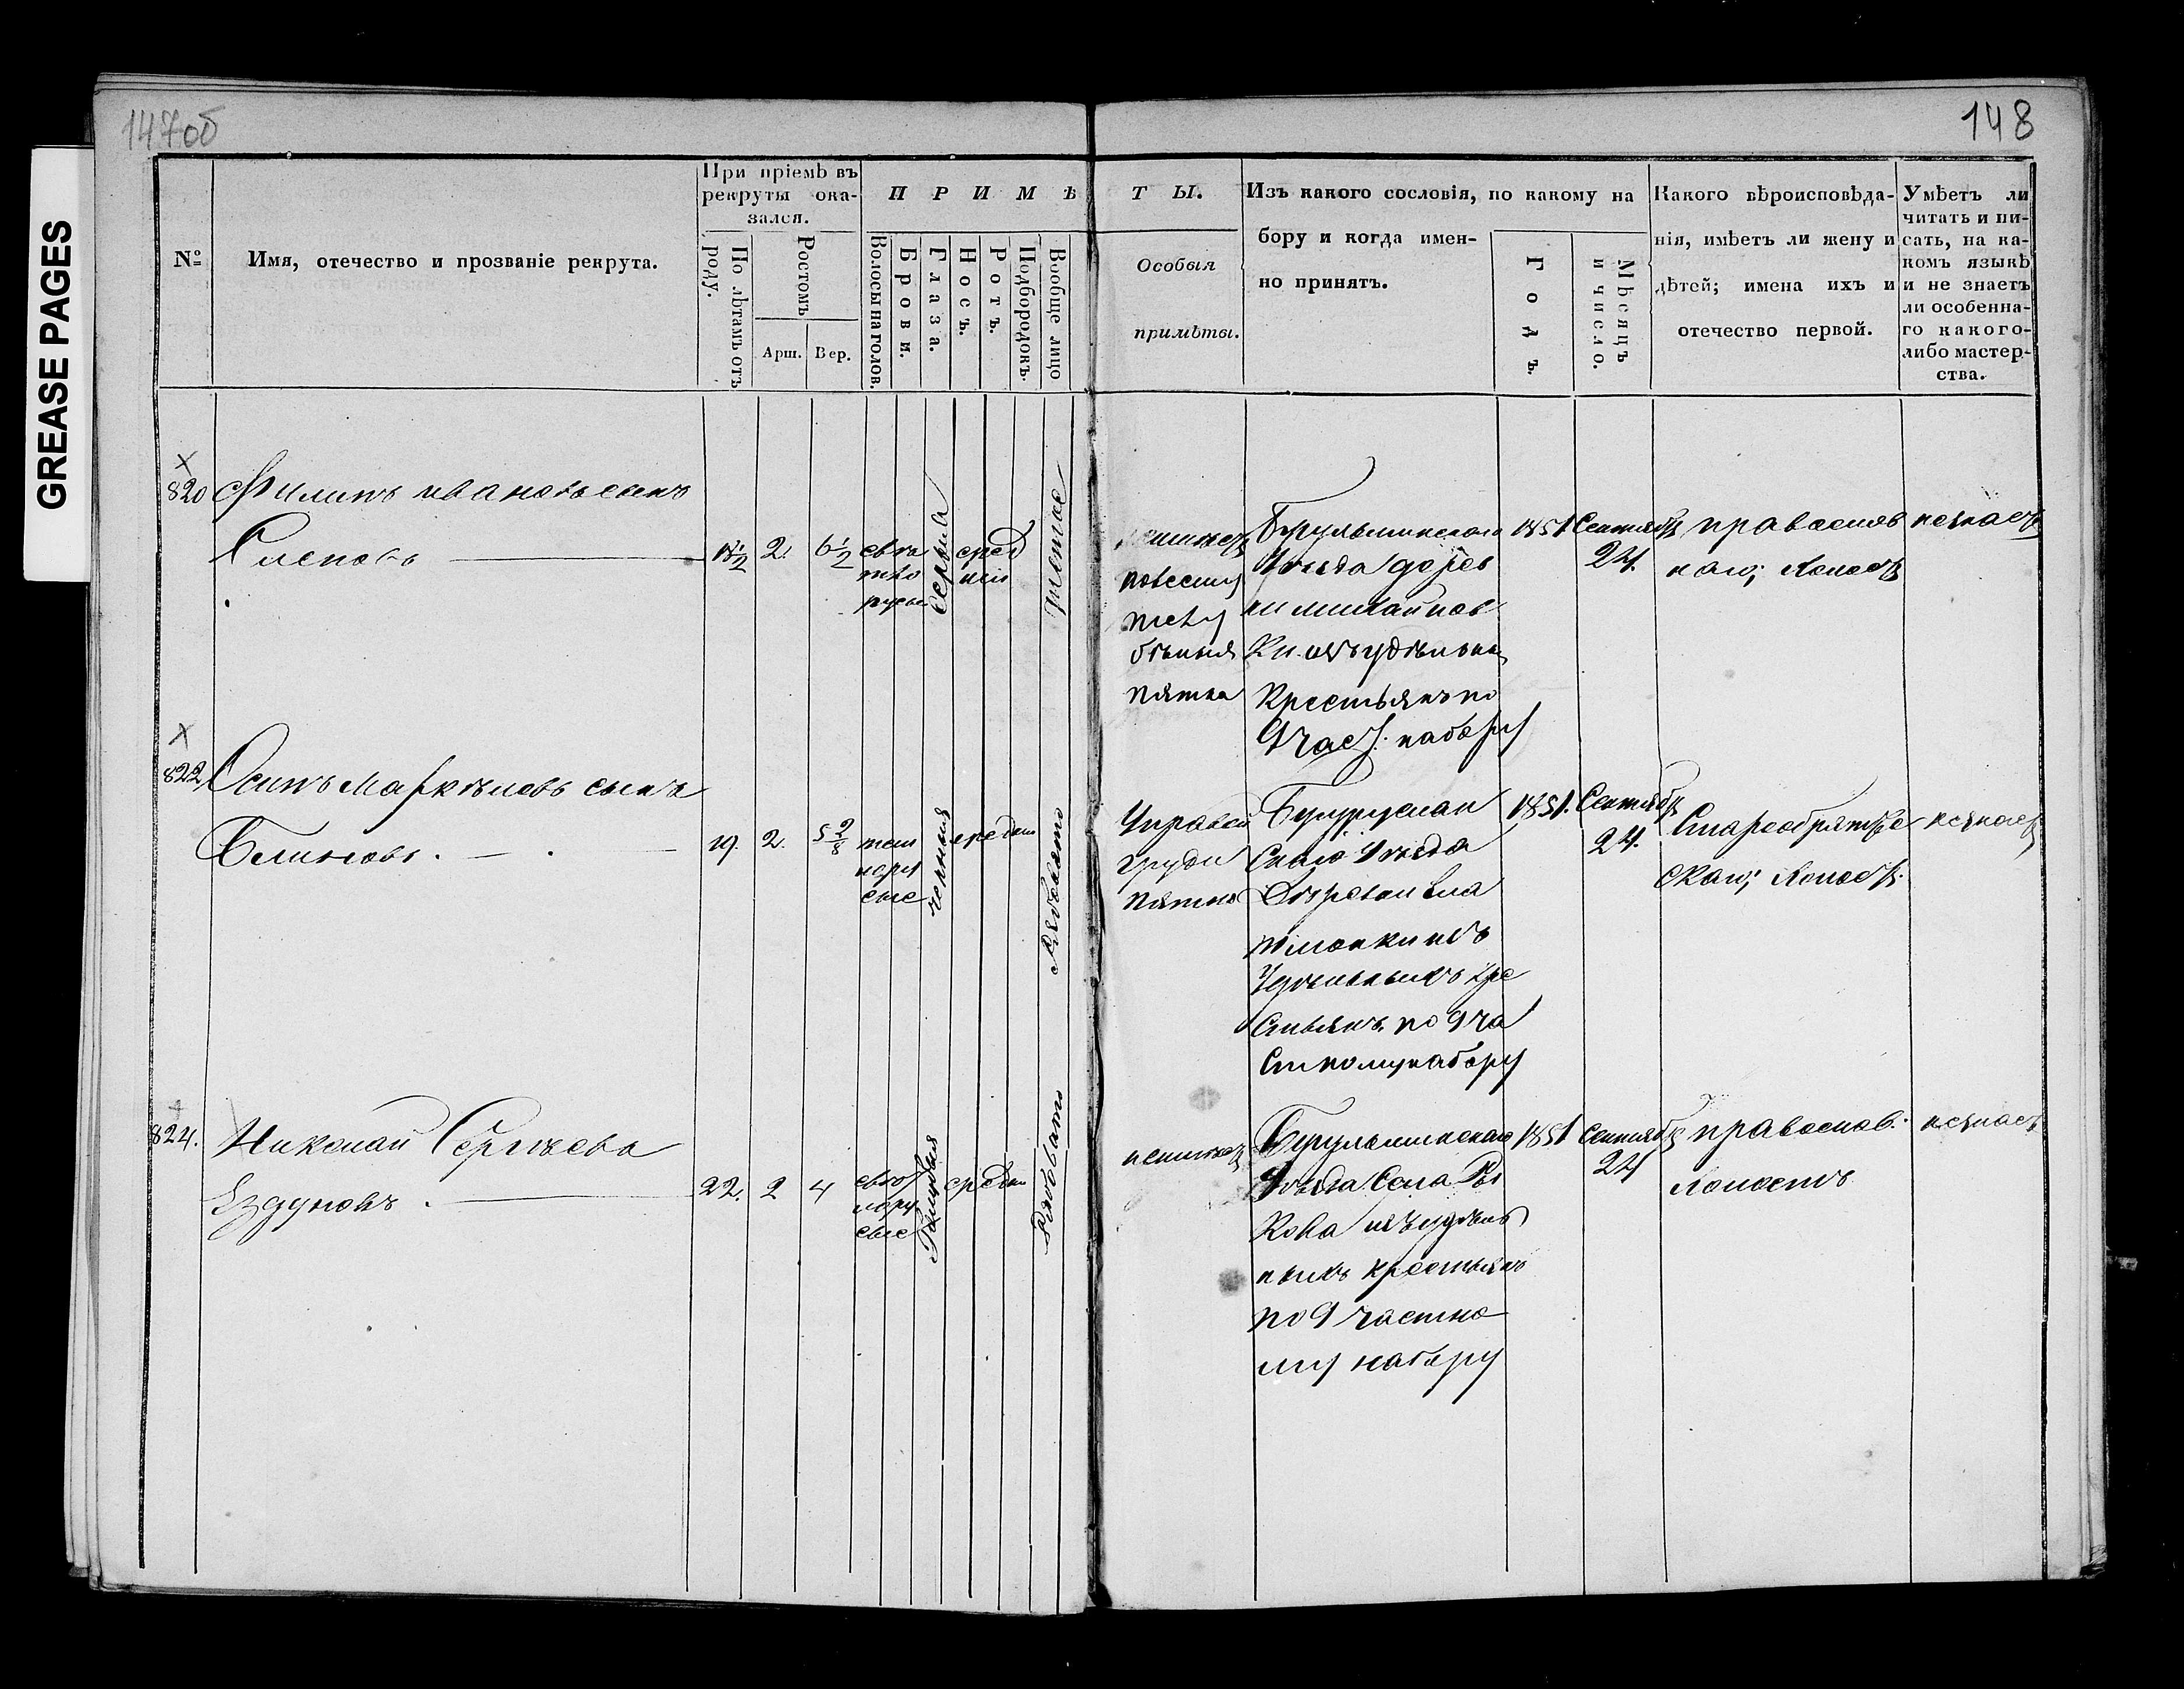 GREASE PAGES
147об
148
№
Имя, отчество и прозваніе рекрута.
При пріемѣ въ
рекруты ока-
зался.
По лѣтамъ отъ
роду.
Ростомъ
Арш. Вер.
ПРИМѢ
ТЫ.
Волосы на голов.
Брови.
Глаза.
Носъ.
Ротъ.
Подбородокъ.
Вообще лицо
Особыя
примѣты.
Изъ какого сословія, по какому на
бору и когда имен-
но принятъ.
Годъ.
Мѣсяцъ
и число.
Какого вѣроисповѣда-
нія, имѣетъ ли жену и
дѣтей; имена ихъ и
отечество первой.
Умѣетъ ли
читать и пи-
сать, на ка-
комъ языкѣ
и не знаетъ
ли особенна-
го какого-
либо мастер-
ства.
820
Филипъ ивановъ сынъ
2. 6 1/2
свѣт
ло
русые
Серыя
сред
ніи
чистое
пятна
Уѣзда
Крестьянъ по
9 част. набору
1851 Сентяб
24.
православ
наго; Холост
незнаетъ
822
Осипъ Маркѣловъ сынъ
Блиновъ.
19. 2. 5 2/8
тем
нору
сые
средни
Рябовато
У правой
груди
пятно
Бугуруслан
Скаго Уѣзда
Удѣльныхъ кре
Стьянъ. по 9 ча
Стному набору
1851. Сентяб
24.
Старообрядче
скаго; Холост.
незнает
824.
Николай Сергѣевъ
Ездуновъ.
22. 2 4
свѣт
лору
сые
Голубыя
средни
Рябовато
неимеет
Уѣзда Села
изъ удѣль
ныхъ крестьянъ
по 9 частно
му набору
1851 Сентяб
24
православ.
Холостъ
незнаетъ